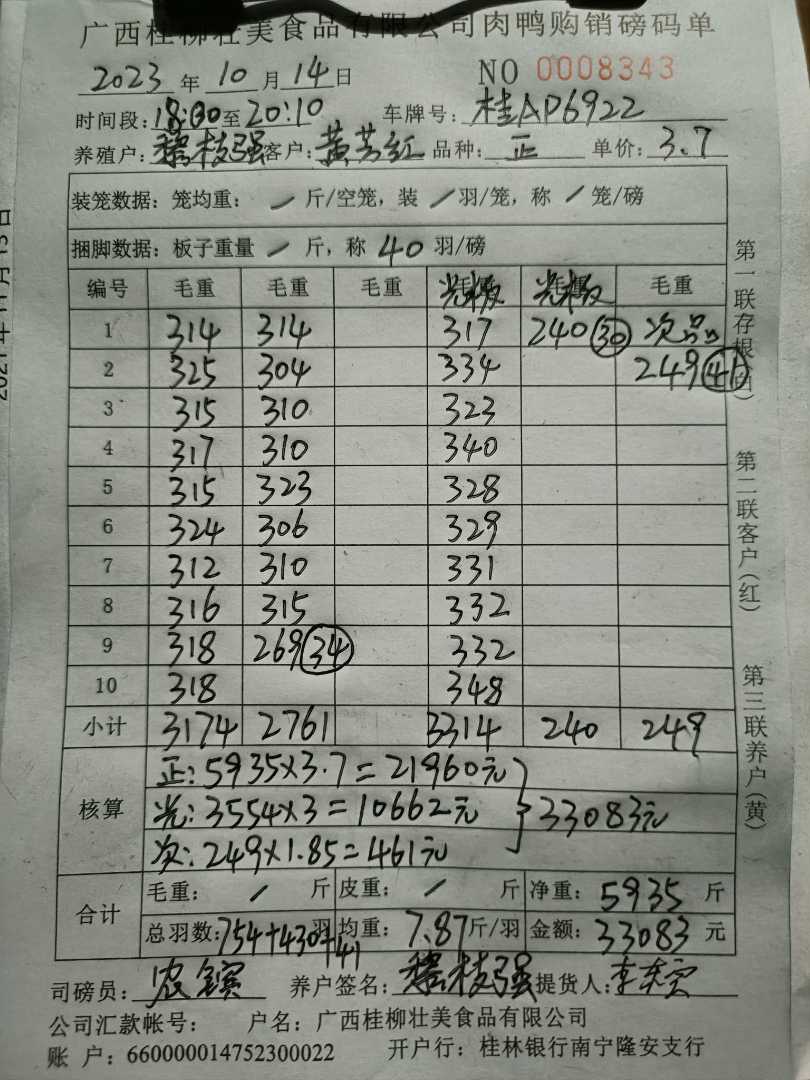 广西桂柳壮美食品有限公司肉鸭购销磅码单
2023 年 10 月 14 日 NO 0008343
时间段: 18:30 至 20:10 车牌号: 桂AP6922
养殖户: 枝强 客户: 黄芳红 品种: 正 单价: 3.7
装笼数据: 笼均重: / 斤/空笼, 装 / 羽/笼, 称 / 笼/磅
捆脚数据: 板子重量 / 斤, 称 40 羽/磅
编号 毛重 毛重 毛重 光板 光板 毛重
1 314 314 317 240 (30) 次品
2 325 304 334 249 (41)
3 315 310 323
4 317 310 340
5 315 323 328
6 324 306 329
7 312 310 331
8 316 315 332
9 318 269 (34) 332
10 318 348
小计 3174 2761 3314 240 249
核算
正: 5935×3.7=21960元
光: 3554×3=10662元 } 33083元
次: 249×1.85=461元
合计
毛重: / 斤 皮重: / 斤 净重: 5935 斤
总羽数: 754+430+41 羽 均重: 7.87 斤/羽 金额: 33083 元
司磅员: 农 养户签名: 枝强 提货人: 李
公司汇款帐号: 户名: 广西桂柳壮美食品有限公司
账 户: 660000014752300022 开户行: 桂林银行南宁隆安支行
第一联存根(白)
第二联客户(红)
第三联养户(黄)